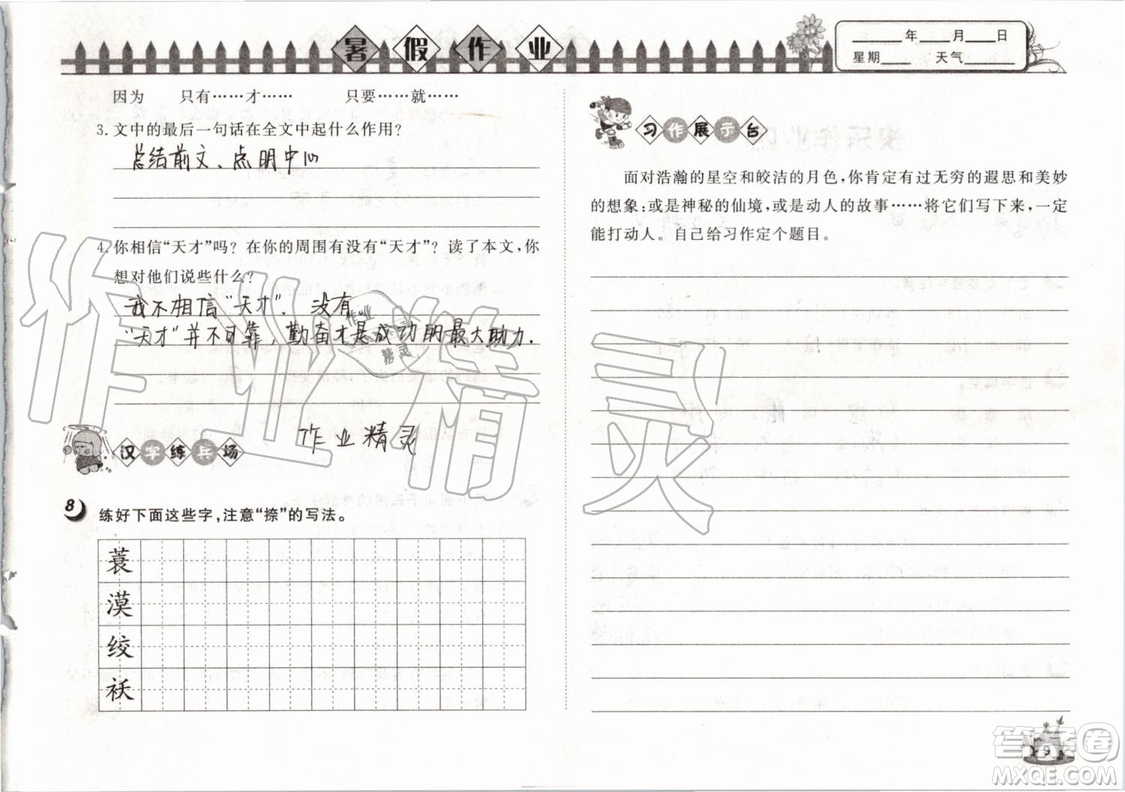 暑假作业
____年____月____日
星期____ 天气____
因为 只有……才…… 只要……就……
3. 文中的最后一句话在全文中起什么作用?
总结前文、点明中心
4. 你相信“天才”吗? 在你的周围有没有“天才”? 读了本文,你
想对他们说些什么?
我不相信“天才”. 没有
“天才”并不可靠, 勤奋才是成功的最大助力.
作业精灵
汉字练兵场
8 练好下面这些字,注意“捺”的写法。
蓑
漠
绞
袄
习作展示台
面对浩瀚的星空和皎洁的月色,你肯定有过无穷的遐思和美妙
的想象:或是神秘的仙境,或是动人的故事……将它们写下来,一定
能打动人。自己给习作定个题目。
9
作业精灵
作业
精灵
答案卷
MXQE.COM